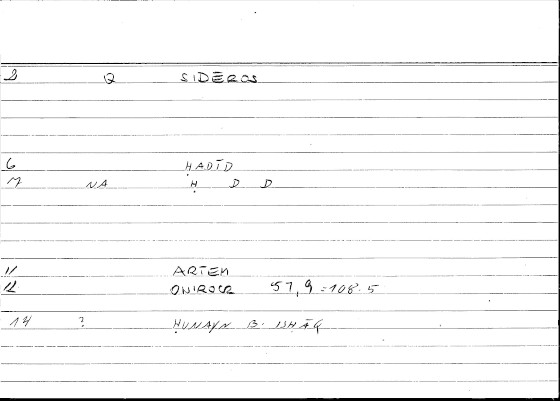 2 Q SIDĒROS
6 ḤADĪD
7 NA Ḥ D D
11 ARTEM
12 ONIROCR 57,9 = 108.5
14 ? ḤUNAYN B. ISḤĀQ